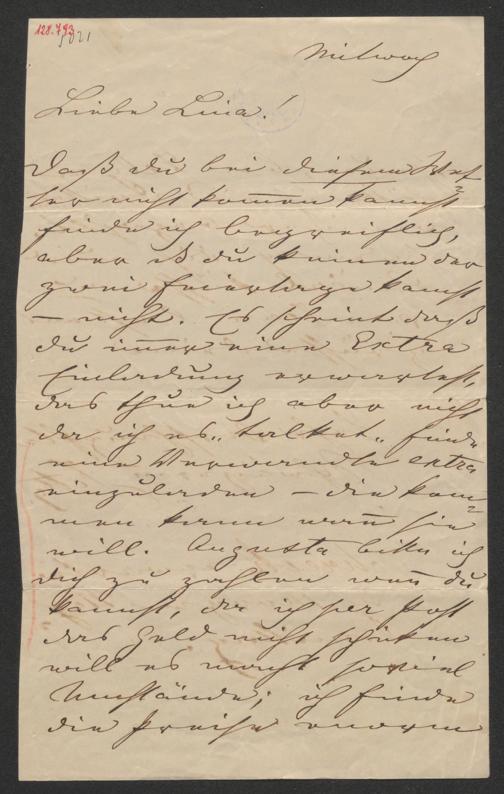 128.793
Mitwoch
Liebe Lina!
Daß du bei diesem Wet
ter nicht kommen kannst
finde ich begreiflich,
aber daß du keinen der
zwei Feiertage kamst
– nicht. Es scheint daß
du immer eine Extra
Einladung erwartest,
das thue ich aber nicht
da ich es „talket„ finde
eine Verwandte extra
einzuladen – die kom=
men kann wann sie
will. Augusta bitte ich
dich zu zahlen wenn du
kannst, da ich per Post
das Geld nicht schicken
will es macht soviel
Umstände; ich finde
die Preise enorm